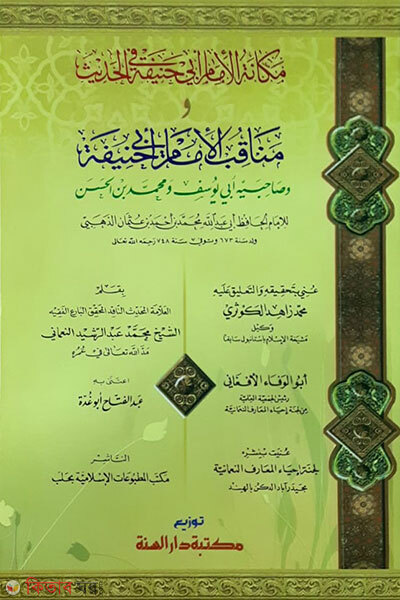 مكانة الإمام أبي حنيفة في الحديث
و
مناقب الإمام أبي حنيفة
وصاحبيه أبي يوسف ومحمد بن الحسن
للإمام الحافظ أبي عبد الله محمد بن أحمد بن عثمان الذهبي
ولد سنة ٦٧٣ وتوفي سنة ٧٤٨ رحمه الله تعالى
عُني بتحقيقه والتعليق عليه
محمد زاهد الكوثري
وكيل
مشيخة الإسلام (استانبول سابقا)
أبو الوفاء الأفغاني
رئيس الجمعية العلمية
من لجنة إحياء المعارف النعمانية
عُنيت بنشره
لجنة إحياء المعارف النعمانية
بحيدرآباد الدكن بالهند
بقلم
العلامة المحدث الناقد المحقق البارع الفقيه
الشيخ محمد عبد الرشيد النعماني
مد الله تعالى في عمره
اعتنى به
عبد الفتاح أبو غدة
الناشر
مكتب المطبوعات الإسلامية بحلب
توزيع
مكتبة دار السنة